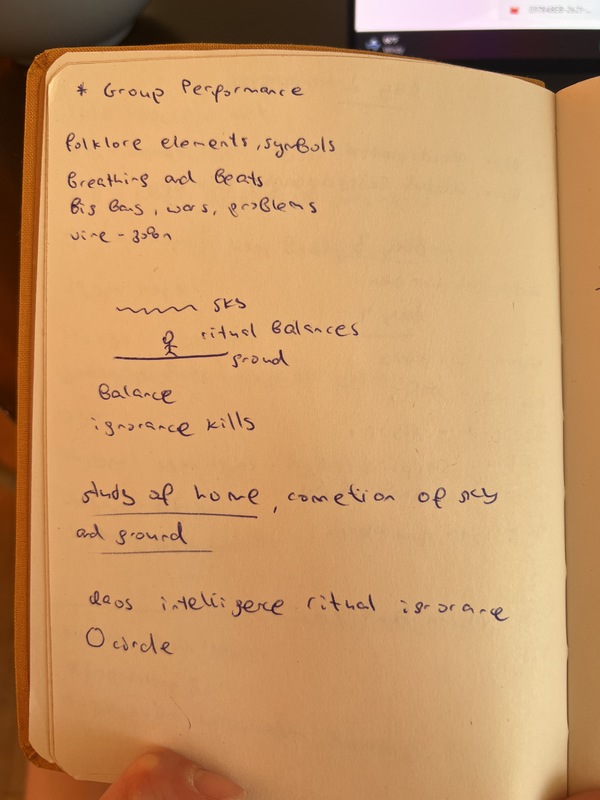 * Group Performance
folklore elements, symbols
Breathing and Beats
Big Bang, wars, problems
sky
ritual Balances
ground
Balance
ignorance kills
study of home, conection of sky
and ground
intelligence ritual ignorance
O circle